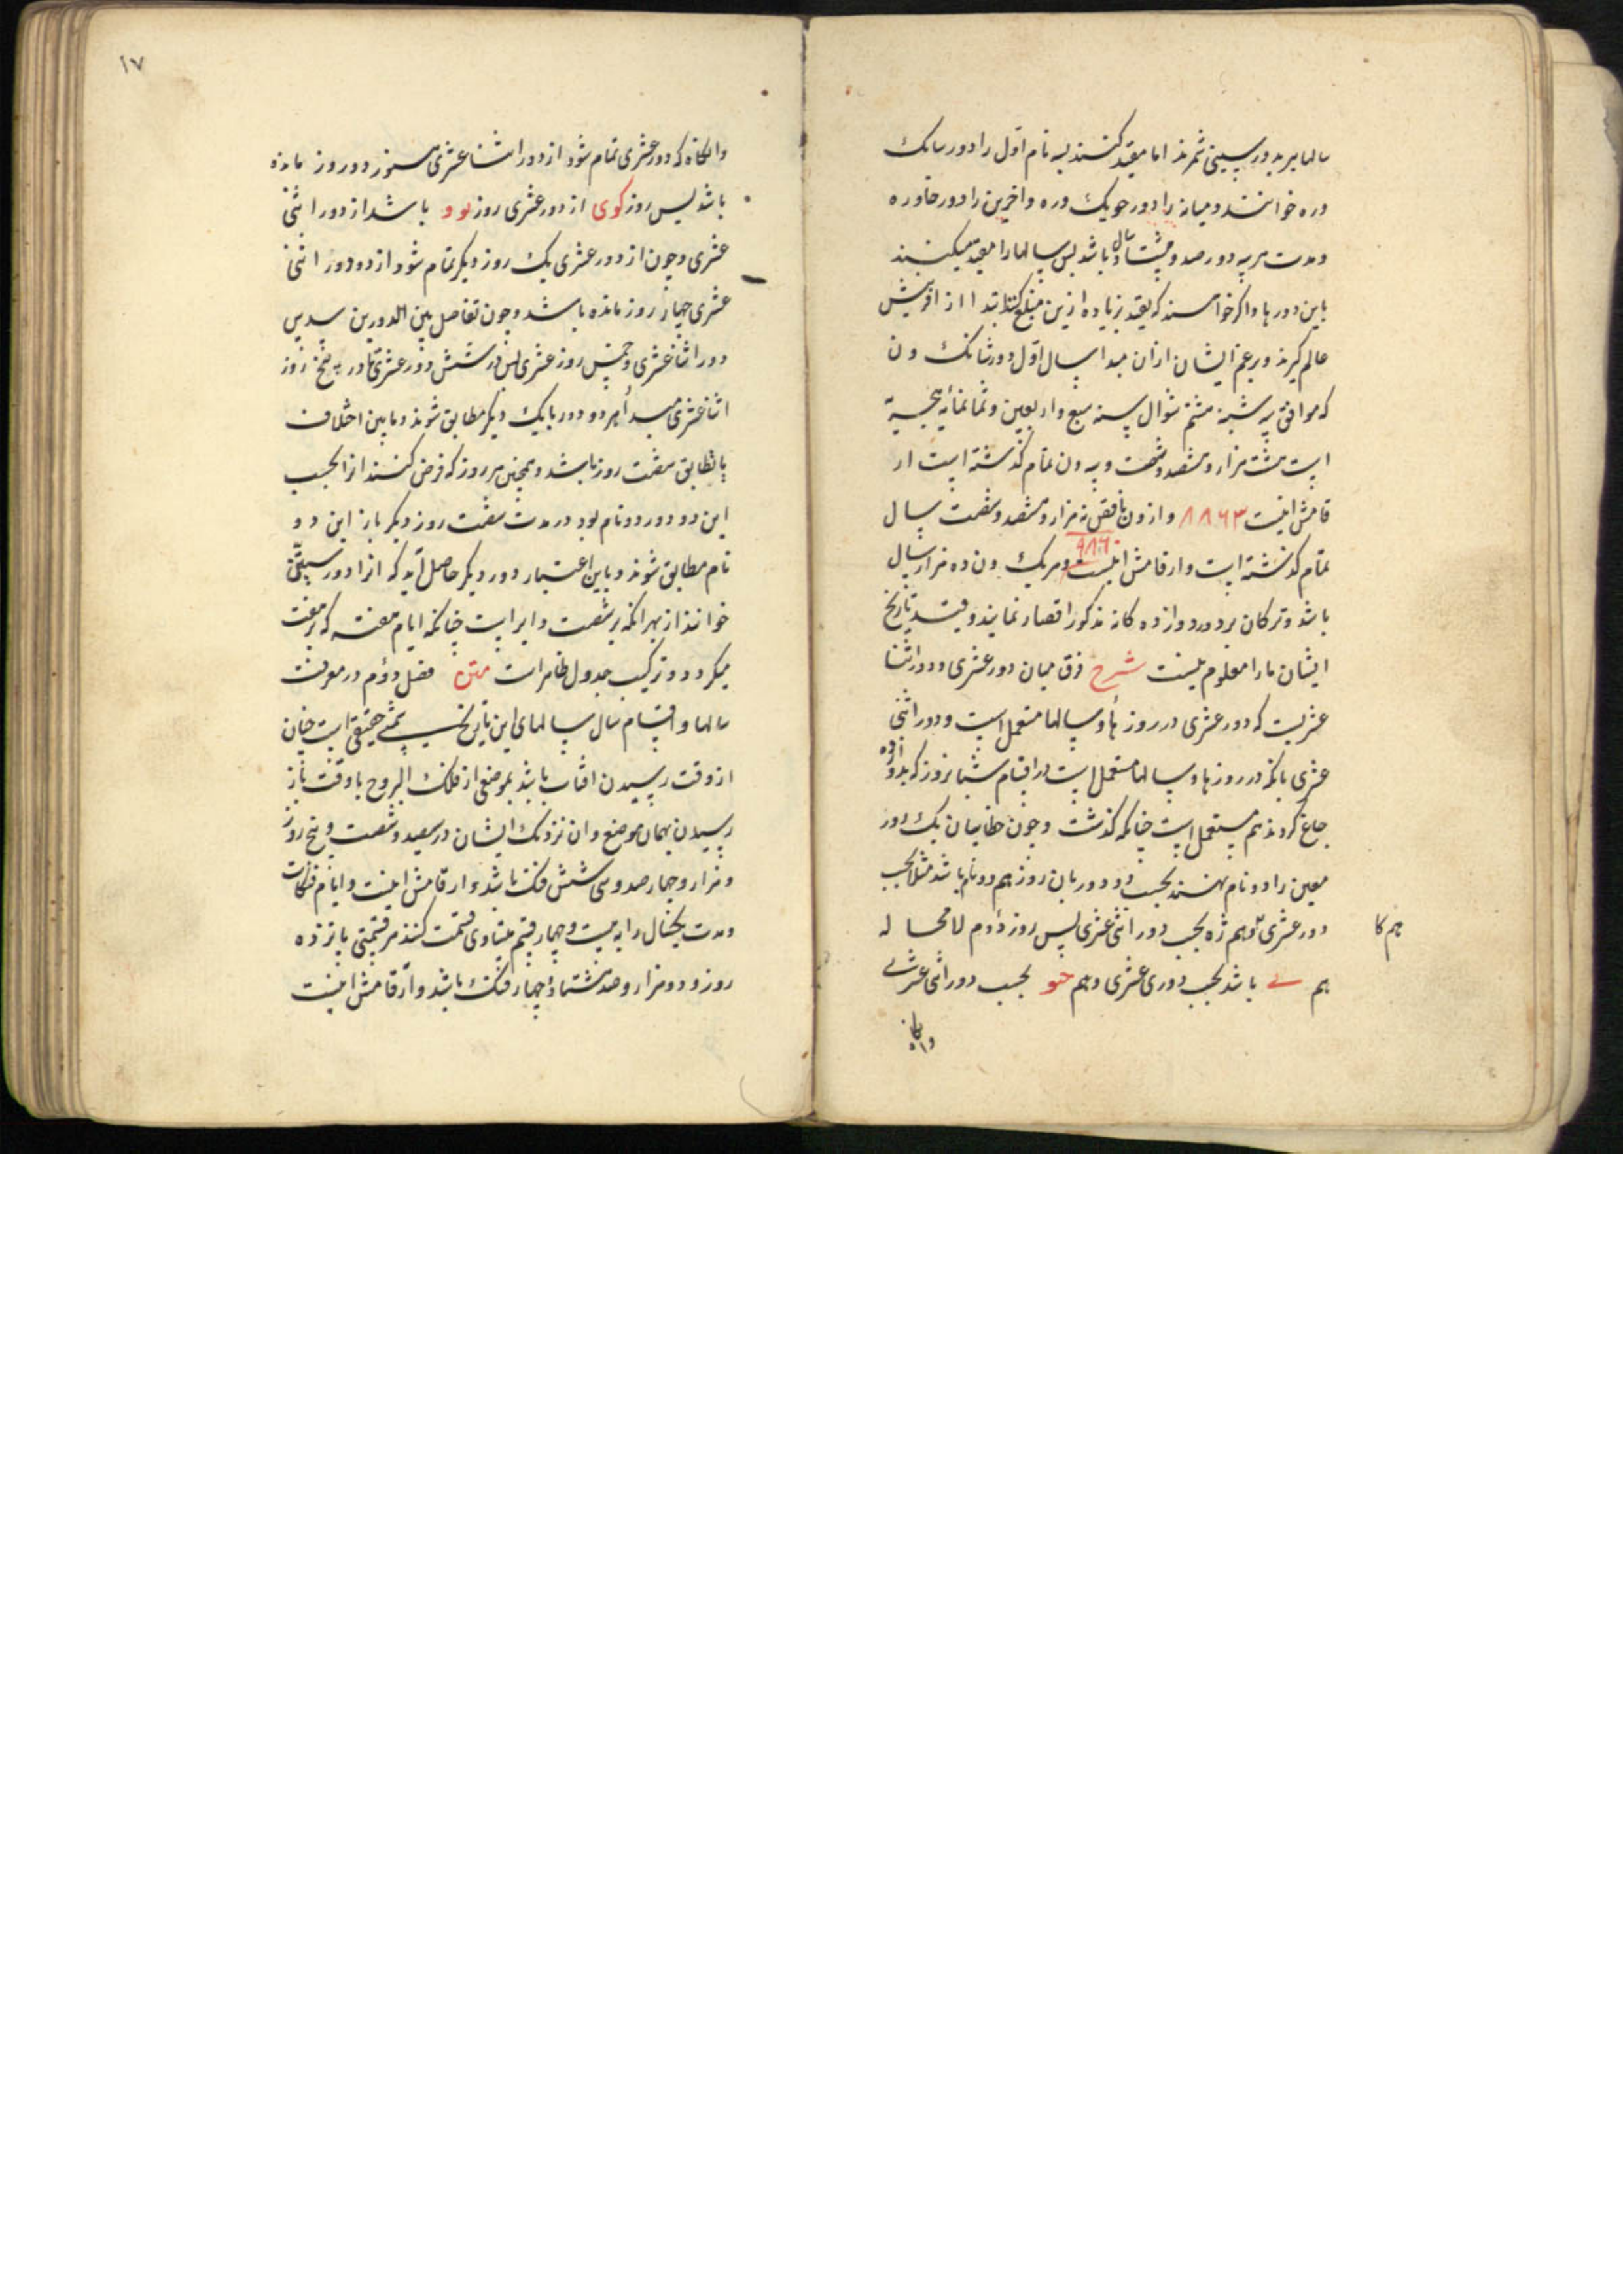 سالها بر بدور سپینی شمرند اما مقید کنند بسه نام اول را دور سانک
وره خوانند و میانه را دور جویک وره و اخرین را دور خاوره
ومدت هر سه دور صد و هشتاد سال باشد پس سالها را مقید میکنند
باین دورها و اکر خواهند که بقید زیاده ازین مبلغ کنند ابتدا از افرینش
عالم کیرند و بزعم ایشان از ان مبدا سال اول دور شانک ون
که موافق سه شنبه هشتم شوال سنه سبع و اربعین و ثمانمائه هجریة
است هشت هزار و هشصد و شصت و سه ون تمام کذشته است ار
قامش اینست ۸۸۶۳ و از ون ناقص نه هزار و هشصد و شصت سال
۹۸۶۰
تمام کذشته است و ارقامش اینست و هر یک ون ده هزار سال
باشد و ترکان بر دور دوازده کانه مذکور اقتصار نمایند و قید تاریخ
ایشان ما را معلوم نیست شرح فرق میان دور عشری و دور اثنا
عشریست که دور عشری در روزها و سالها مستعمل است و دور اثنی
عشری بانکه در روزها و سالها مستعمل است در اقسام شبانروز که بدوازده
جاغ کردند هم مستعمل است چنانکه کذشت و چون خطائیان یک روز
معین را دو نام نهند بحسب دو دور پس ان روز هم دو نام باشد مثلا بحسب
دور عشری بحسب دور اثنی عشری پس روز دوم لا محاله
هم باشد بحسب دور عشری و هم بحسب دور اثنی عشری
وانکاه
۱۷
وانکاه که دور عشری تمام شود از دور اثنا عشری هنوز دو روز مانده
باشد پس روز کوی از دور عشری روز باشد از دور اثنی
عشری و چون از دور عشری یک روز دیکر تمام شود از دور اثنی
عشری چهار روز مانده باشد و چون تفاضل بین الدورین سدس
دور اثنا عشری و خمس روز عشری پس در شش دور عشری تا در پنج روز
اثنا عشری مبدأ هر دو دور با یک دیکر مطابق شوند و مابین اختلاف
یا تطابق شصت روز باشد و همچنین هر روز که فرض کنند از انجسب
این دو دور دو نام بود در مدت شصت روز دیکر باز این دو
نام مطابق شوند و باین اعتبار دور دیکر حاصل آید که انرا دور ستینی
خوانند از بهر انکه بر شصت دایر است چنانکه ایام هفته که بر هفت
میکردد و ترکیب جدول ظاهر است متن فصل دوم در معرفت
سالها و اقسام سال سالهای این تاریخ شمسی حقیقی است چنان
از وقت رسیدن افتاب باشد بموضعی از فلک البروج تا وقت باز
رسیدن بهمان موضع و ان نزدیک ایشان در سیصد و شصت و پنج روز
و هزار و چهار صد و سی شش فنک باشد و ارقامش اینست و ایام فنکات
ومدت یکسال را به بیست و چهار قسم متساوی قسمت کنند هر قسمتی پانزده
روز و دو هزار و صد هشتاد و چهار فنک باشد و ارقامش اینست